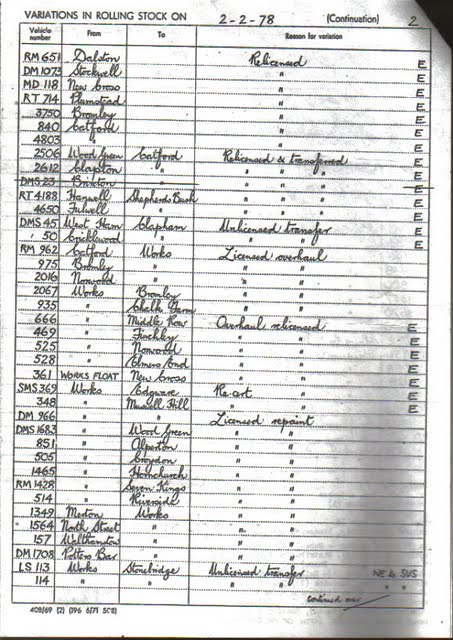 VARIATIONS IN ROLLING STOCK ON 2-2-78 (Continuation) 2
Vehicle number From To Reason for variation
RM 651 Dalston Relicensed E
DM 1073 Stockwell " E
MD 118 New Cross " E
RT 714 Plumstead " E
3750 Bromley " E
840 Catford " E
4803 " " E
2506 Wood Green Catford Relicensed & transferred E
2612 Clapton " " " " E
DMS 23 Brixton " " " E
RT 4188 Hanwell Shepherds Bush " " " E
4650 Fulwell " " " " E
DMS 45 West Ham Clapham Unlicensed transfer E
" 50 Cricklewood " " " E
RM 962 Catford Works Licensed overhaul
975 Bromley " " "
2016 Norwood " " "
2067 Works Bromley " "
935 " Chalk Farm " "
666 " Middle Row Overhaul relicensed E
469 " Finchley " " E
525 " Norwood " " E
528 " Elmers End " " E
361 WORKS FLOAT New Cross " " E
SMS 369 Works Edgware Re cert E
348 " Muswell Hill " " E
DM 966 " " Licensed repaint
DMS 1683 " Wood Green " "
851 " Alperton " "
505 " Croydon " "
1465 " Hornchurch " "
RM 1428 " Seven Kings " "
514 " Riverside " "
1349 Merton Works " "
" 1564 North Street " " "
157 Walthamstow " " "
DM 1708 Potters Bar " " "
LS 113 Works Stonebridge Unlicensed transfer NE & SVS
114 " " " " " "
continued over
408/69 (2) (196 6/71 SCB)